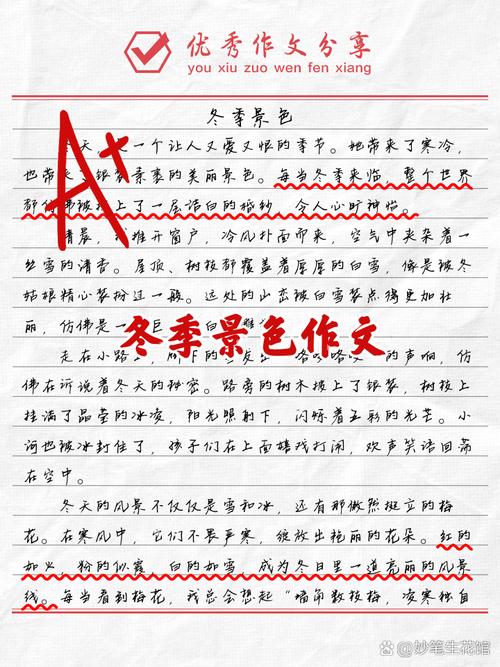 优秀作文分享
you xiu zuo wen fen xiang
冬季景色
A+
冬天，是一个让人又爱又恨的季节。她带来了寒冷，
也带来了银装素裹的美丽景色。每当冬季来临，整个世界
都仿佛被披上了一层洁白的婚纱，令人心旷神怡。
清晨，我推开窗户，冷风扑面而来，空气中夹杂着一
丝雪的清香。屋顶、树枝都覆盖着厚厚的白雪，像是被冬
姑娘精心装扮过一般。远处的山峦被白雪装点得更加壮
丽，仿佛是一 巨 白 雕
冬季景色作文
走在小路上，脚下的 发出 咯吱咯吱 的声响，仿
佛在诉说着冬天的秘密。路旁的树木披上了银装，树枝上
挂满了晶莹的冰凌，阳光照射下，闪烁着五彩的光芒。小
河也被冰封住了，孩子们在上面嬉戏打闹，欢声笑语回荡
在空中。
冬天的风景不仅仅是雪和冰，还有那傲然挺立的梅
花。在寒风中，它们不畏严寒，绽放出艳丽的花朵。红的
如火，粉的似霞，白的如雪，成为冬日里一道亮丽的风景
线。每当看到梅花，我总会想起“墙角数枝梅，凌寒独自
@妙笔生花馆